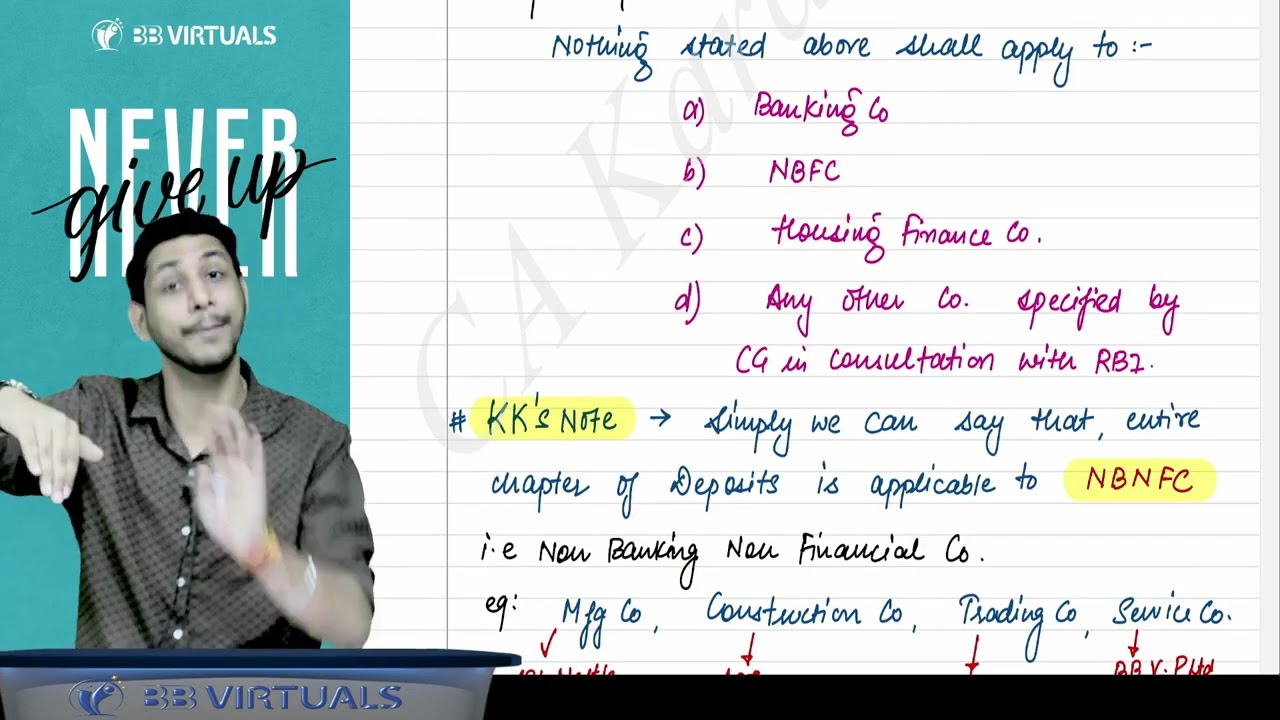 BB VIRTUALS
NEVER
give up
Nothing stated above shall apply to :-
a) Banking Co
b) NBFC
c) Housing Finance Co.
d) Any other Co. specified by
CG in consultation with RBI.
# KK's Note → Simply we can say that, entire
chapter of Deposits is applicable to NBNFC
i.e Non Banking Non Financial Co.
eg: Mfg Co, Construction Co, Trading Co, Service Co.
BB V. P Ltd
CA Kara
BB VIRTUALS